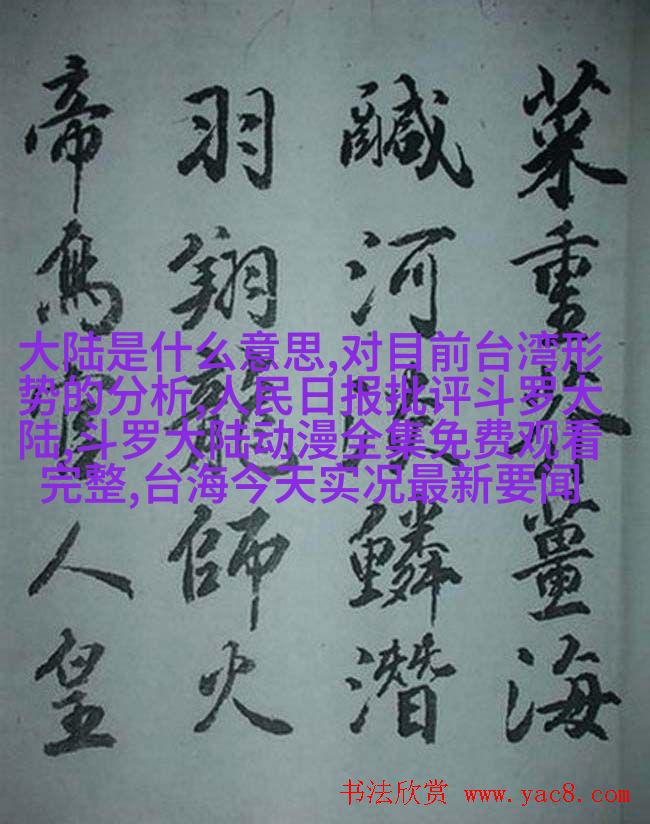 菜重芥薑海
鹹河淡鱗潛
羽翔龍師火
帝鳥官人皇
大陆是什么意思,对目前台湾形
势的分析,人民日报批评斗罗大
陆,斗罗大陆动漫全集免费观看
完整,台海今天实况最新要闻
书法欣赏 www.yac8.com